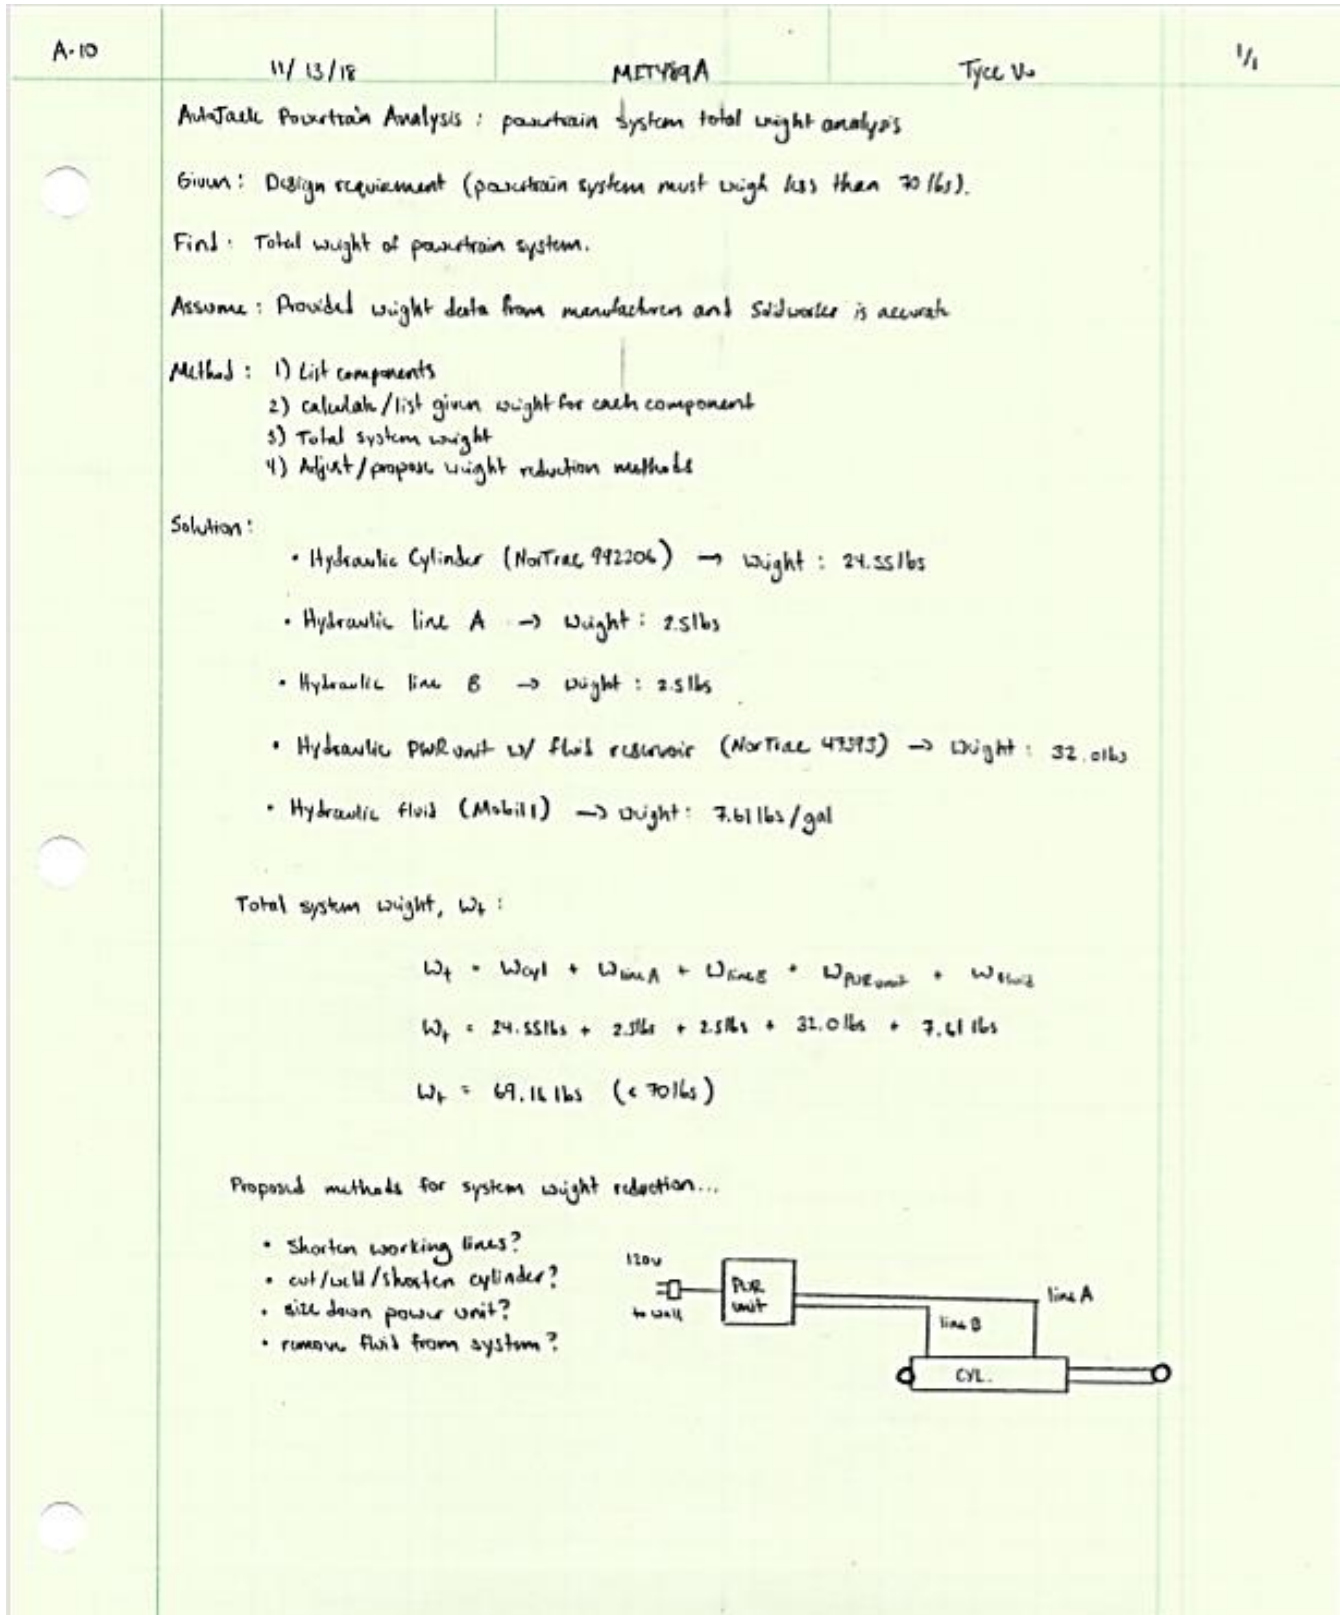 A-10
11/13/18 MET489A Tyce V. 1/1
AutoJack Powertrain Analysis : powertrain system total weight analysis
Given : Design requirement (powertrain system must weigh less than 70 lbs).
Find : Total weight of powertrain system.
Assume : Provided weight data from manufacturers and Solidworks is accurate
Method : 1) List components
2) calculate/list given weight for each component
3) Total system weight
4) Adjust/propose weight reduction methods
Solution :
• Hydraulic Cylinder (NorTrac 992206) → Weight : 24.55 lbs
• Hydraulic line A → Weight : 2.5 lbs
• Hydraulic line B → Weight : 2.5 lbs
• Hydraulic PWR unit w/ fluid reservoir (NorTrac) → Weight : 32.0 lbs
• Hydraulic fluid (Mobil 1) → Weight : 7.61 lbs/gal
Total system weight, Wt :
Wt = Wcyl + Wline A + Wline B + WPWR unit + Wfluid
Wt = 24.55 lbs + 2.5 lbs + 2.5 lbs + 32.0 lbs + 7.61 lbs
Wt = 69.16 lbs (< 70 lbs)
Proposed methods for system weight reduction...
• Shorten working lines?
• cut/weld/shorten cylinder?
• size down power unit?
• remove fluid from system?
120v
to wall
PWR
unit
line A
line B
CYL.